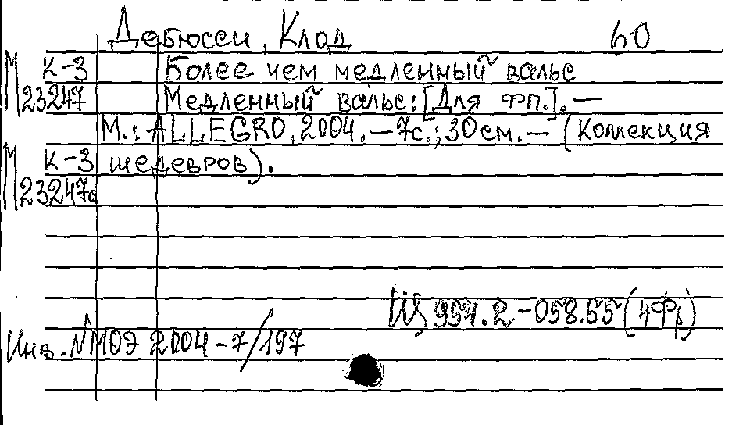 Дебюсси, Клод 60
М К-3 Более чем медленный вальс
23247 Медленный вальс: [Для фп.]. —
М.: ALLEGRO, 2004. — 7с.; 30см. — (Коллекция
М К-3 шедевров).
23247а
Щ 954.2-058.55(4Фр)
Инв. №МОЭ 2004-7/197